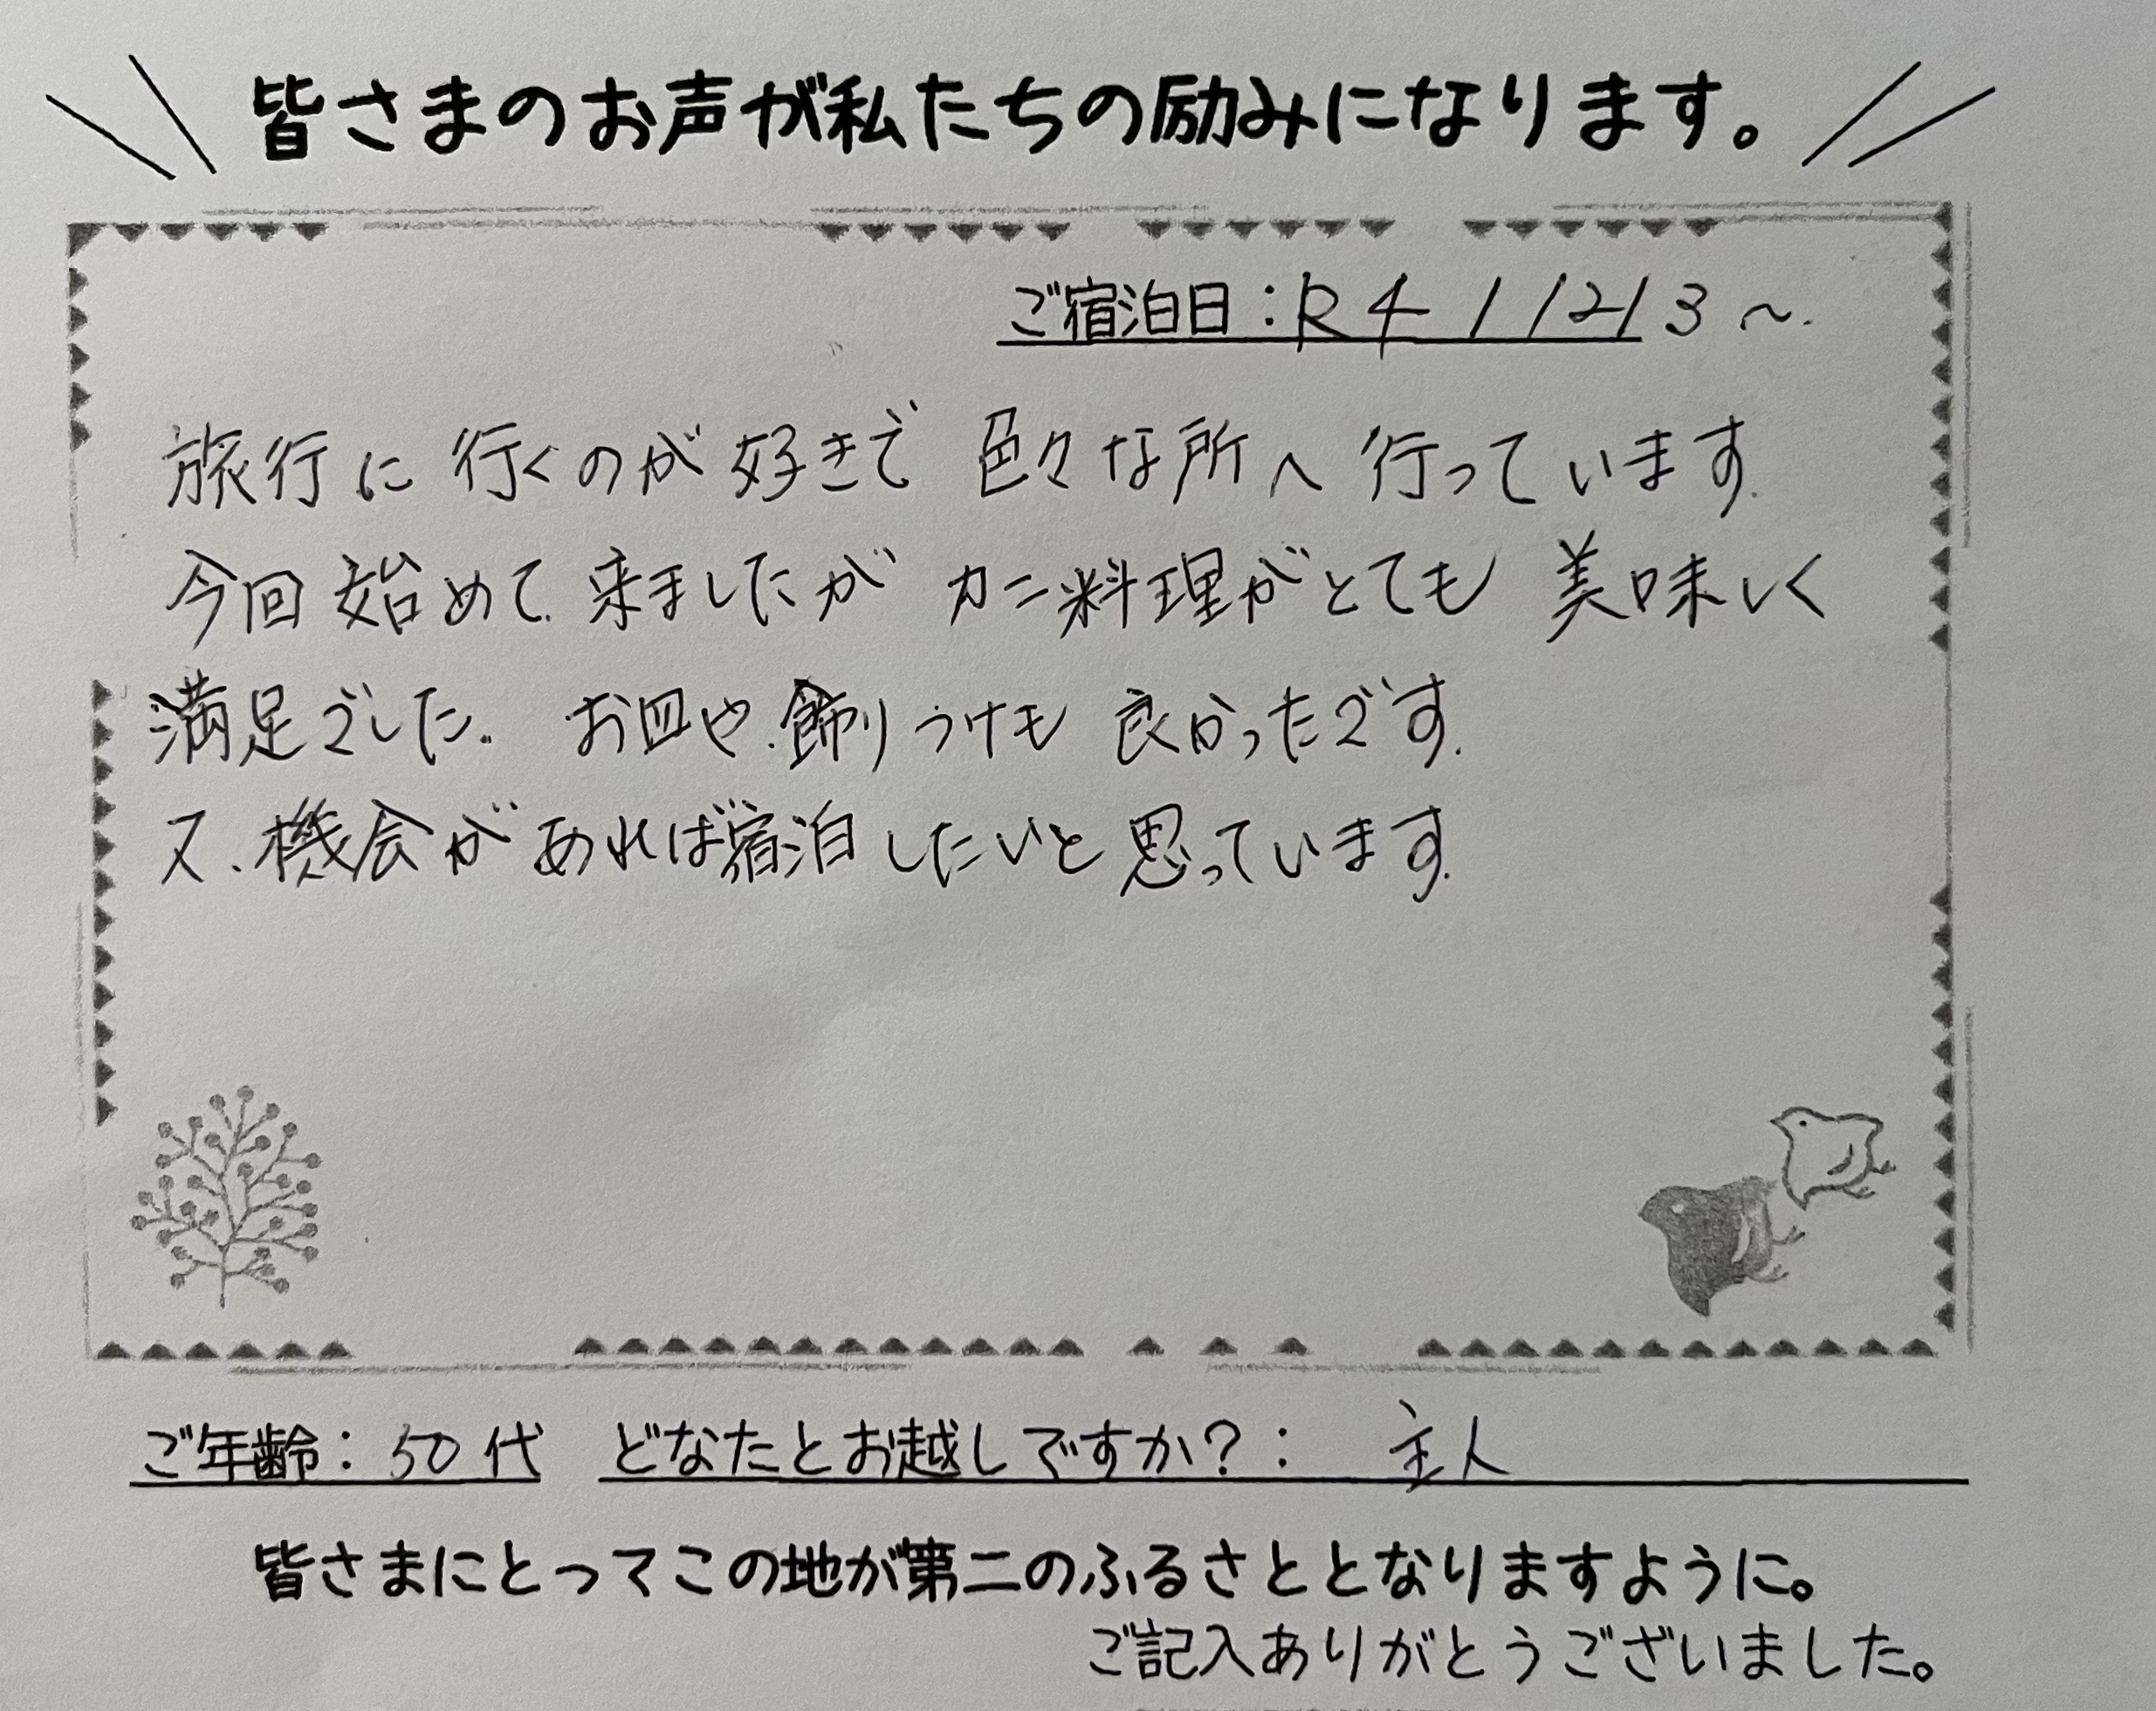 皆さまのお声が私たちの励みになります。
ご宿泊日：R4 1/12/13〜.
旅行に行くのが好きで 色々な所へ行っています.
今回始めて.来ましたが カニ料理がとても 美味しく
満足でした. お皿や.飾りつけも 良かったです.
又.機会があれば宿泊したいと思っています.
ご年齢：50代 どなたとお越しですか？： 主人
皆さまにとってこの地が第二のふるさととなりますように。
ご記入ありがとうございました。